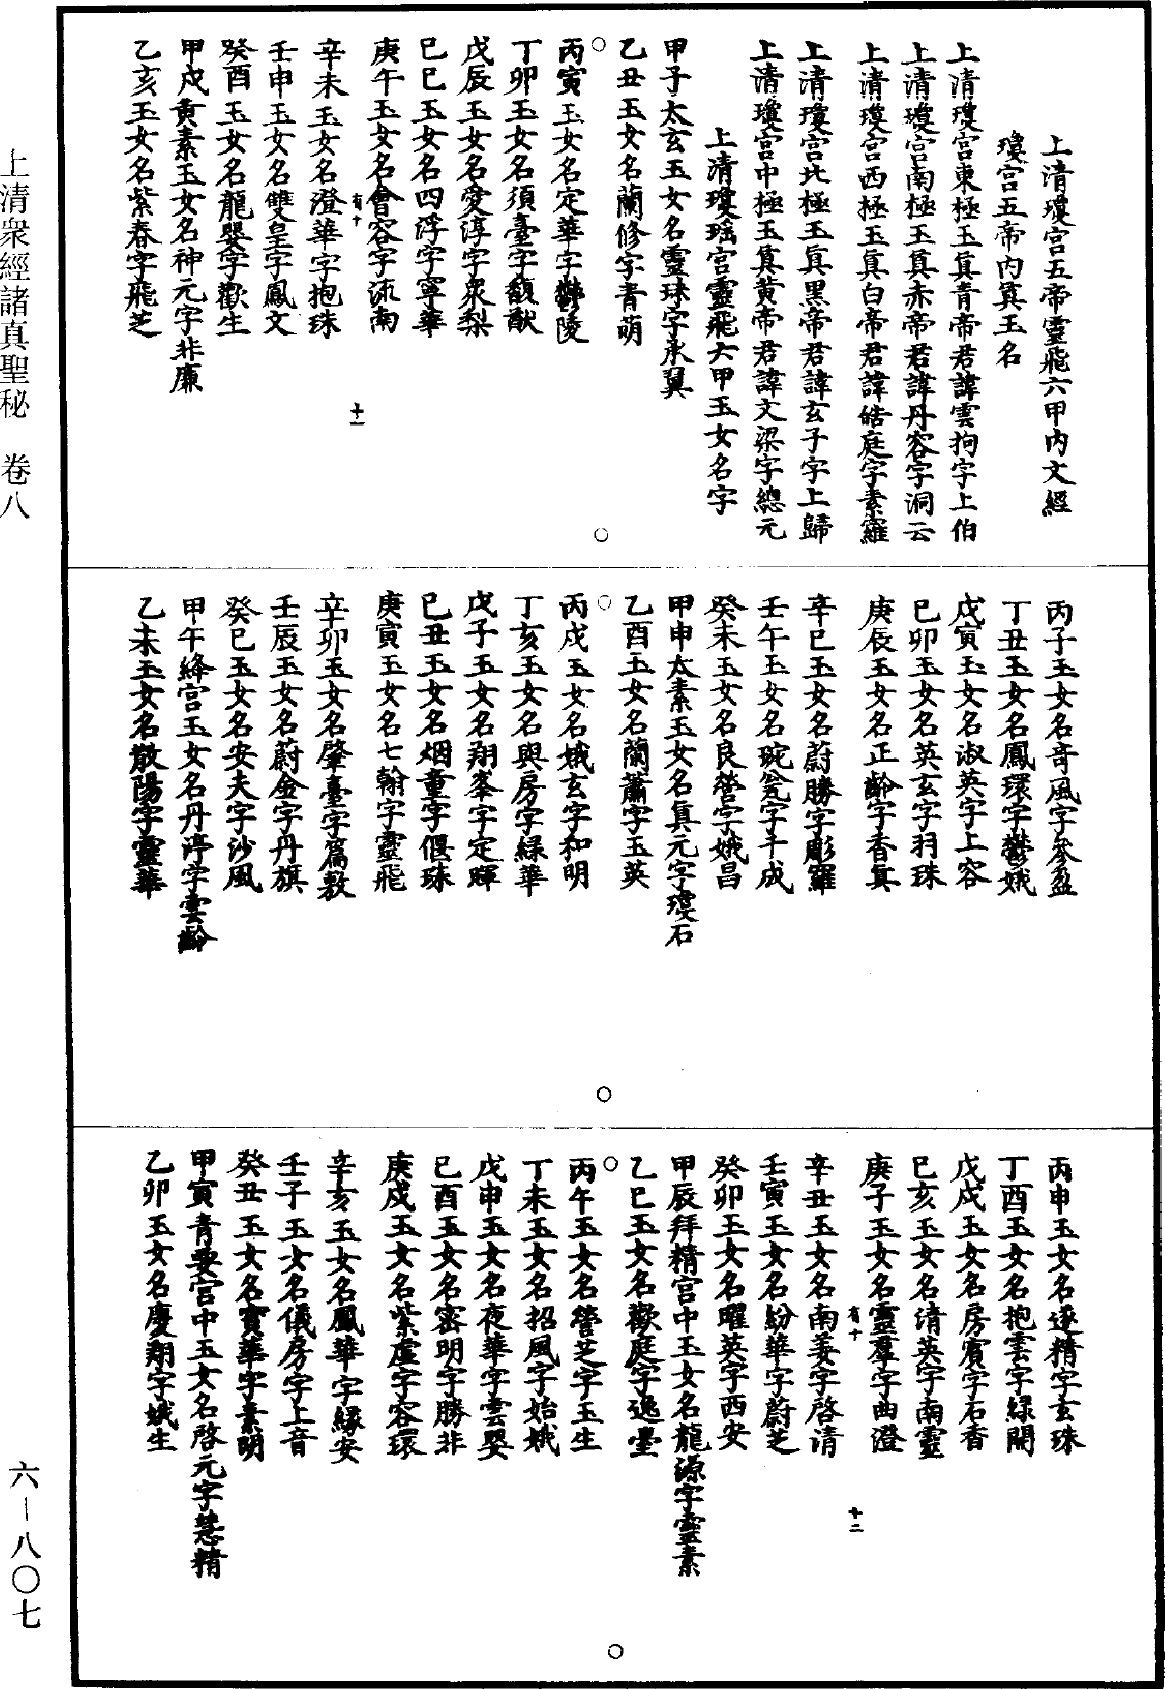 上清瓊宫五帝靈飛六甲内文經
瓊宫五帝内眞玉名
上清瓊宫東極玉眞青帝君諱雲拘字上伯
上清瓊宫南極玉眞赤帝君諱丹容字洞云
上清瓊宫西極玉眞白帝君諱皓庭字素羅
上清瓊宫北極玉眞黒帝君諱玄子字上歸
上清瓊宫中極玉眞黄帝君諱文梁字總元
上清瓊瑶宫靈飛六甲玉女名字
甲子太玄玉女名靈珠字承翼
乙丑玉女名蘭修字青萌
丙寅玉女名定華字鬱陵
丁卯玉女名須臺字馥猷
戊辰玉女名愛淳字衆梨
己巳玉女名四浮字寧華
庚午玉女名會容字流南
有十
十一
辛未玉女名澄華字抱珠
壬申玉女名雙皇字鳳文
癸酉玉女名龍嬰字歡生
甲戌黄素玉女名神元字非廉
乙亥玉女名紫春字飛芝
丙子玉女名奇風字參盈
丁丑玉女名鳳環字鬱娥
戊寅玉女名淑英字上容
己卯玉女名英玄字羽珠
庚辰玉女名正齡字香眞
辛巳玉女名蔚勝字彫羅
壬午玉女名琬瓫字千成
癸未玉女名良營字娥昌
甲申太素玉女名眞元字瓊石
乙酉玉女名蘭蕭字玉英
丙戌玉女名娥玄字和明
丁亥玉女名興房字緑華
戊子玉女名翔峯字定暉
己丑玉女名烟童字偃珠
庚寅玉女名七翰字靈飛
辛卯玉女名肇臺字篇敷
壬辰玉女名蔚金字丹旗
癸巳玉女名安夫字沙風
甲午絳宫玉女名丹渟字雲齡
乙未玉女名散陽字靈華
丙申玉女名逐精字玄珠
丁酉玉女名抱雲字緑開
戊戌玉女名房賓字石香
己亥玉女名清英字南靈
庚子玉女名靈羣字曲澄
有十
十二
辛丑玉女名南姜字啓清
壬寅玉女名紛華字蔚芝
癸卯玉女名曜英字西安
甲辰拜精宫中玉女名龍源字靈素
乙巳玉女名歡庭字逸臺
丙午玉女名營芝字玉生
丁未玉女名招風字始娥
戊申玉女名夜華字雲嬰
己酉玉女名密明字勝非
庚戌玉女名紫虚字容環
辛亥玉女名鳳華字緣安
壬子玉女名儀房字上音
癸丑玉女名寳華字素明
甲寅青要宫中玉女名啓元字慧精
乙卯玉女名慶翔字娥生
上清衆經諸真聖秘 卷八
六—八〇七